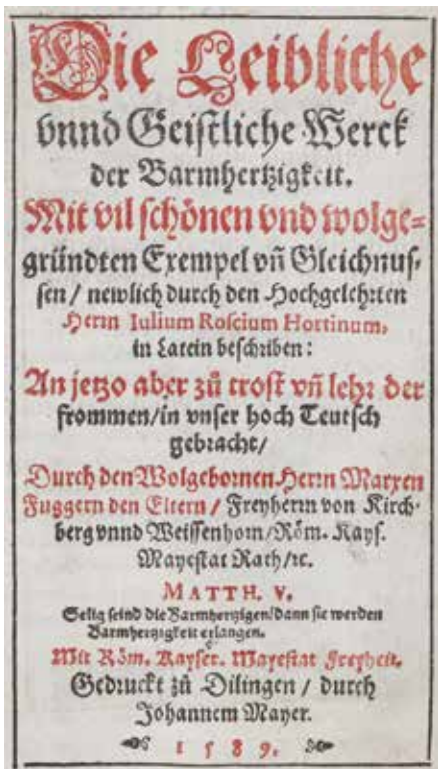 Die Leibliche
vnnd Geistliche Werck
der Barmhertzigkeit.
Mit vil schönen vnd wolge=
gründten Exempel vñ Gleichnus=
sen / newlich durch den Hochgelehrten
Herrn Iulium Roscium Hortinum,
in Latein beschriben:
An jetzo aber zů trost vñ lehr der
frommen/in vnser hoch Teutsch
gebracht/
Durch den Wolgebornen Herrn Marxen
Fuggern den Eltern / Freyherrn von Kirch=
berg vnnd Weissenhorn/Röm. Kays.
Mayestat Rath/ꝛc.
MATTH. V.
Selig seind die Barmhertzigen/dann sie werden
Barmhertzigkeit erlangen.
Mit Röm. Kayser. Mayestat Freyheit.
Gedruckt zů Dilingen / durch
Johannem Mayer.
1589.